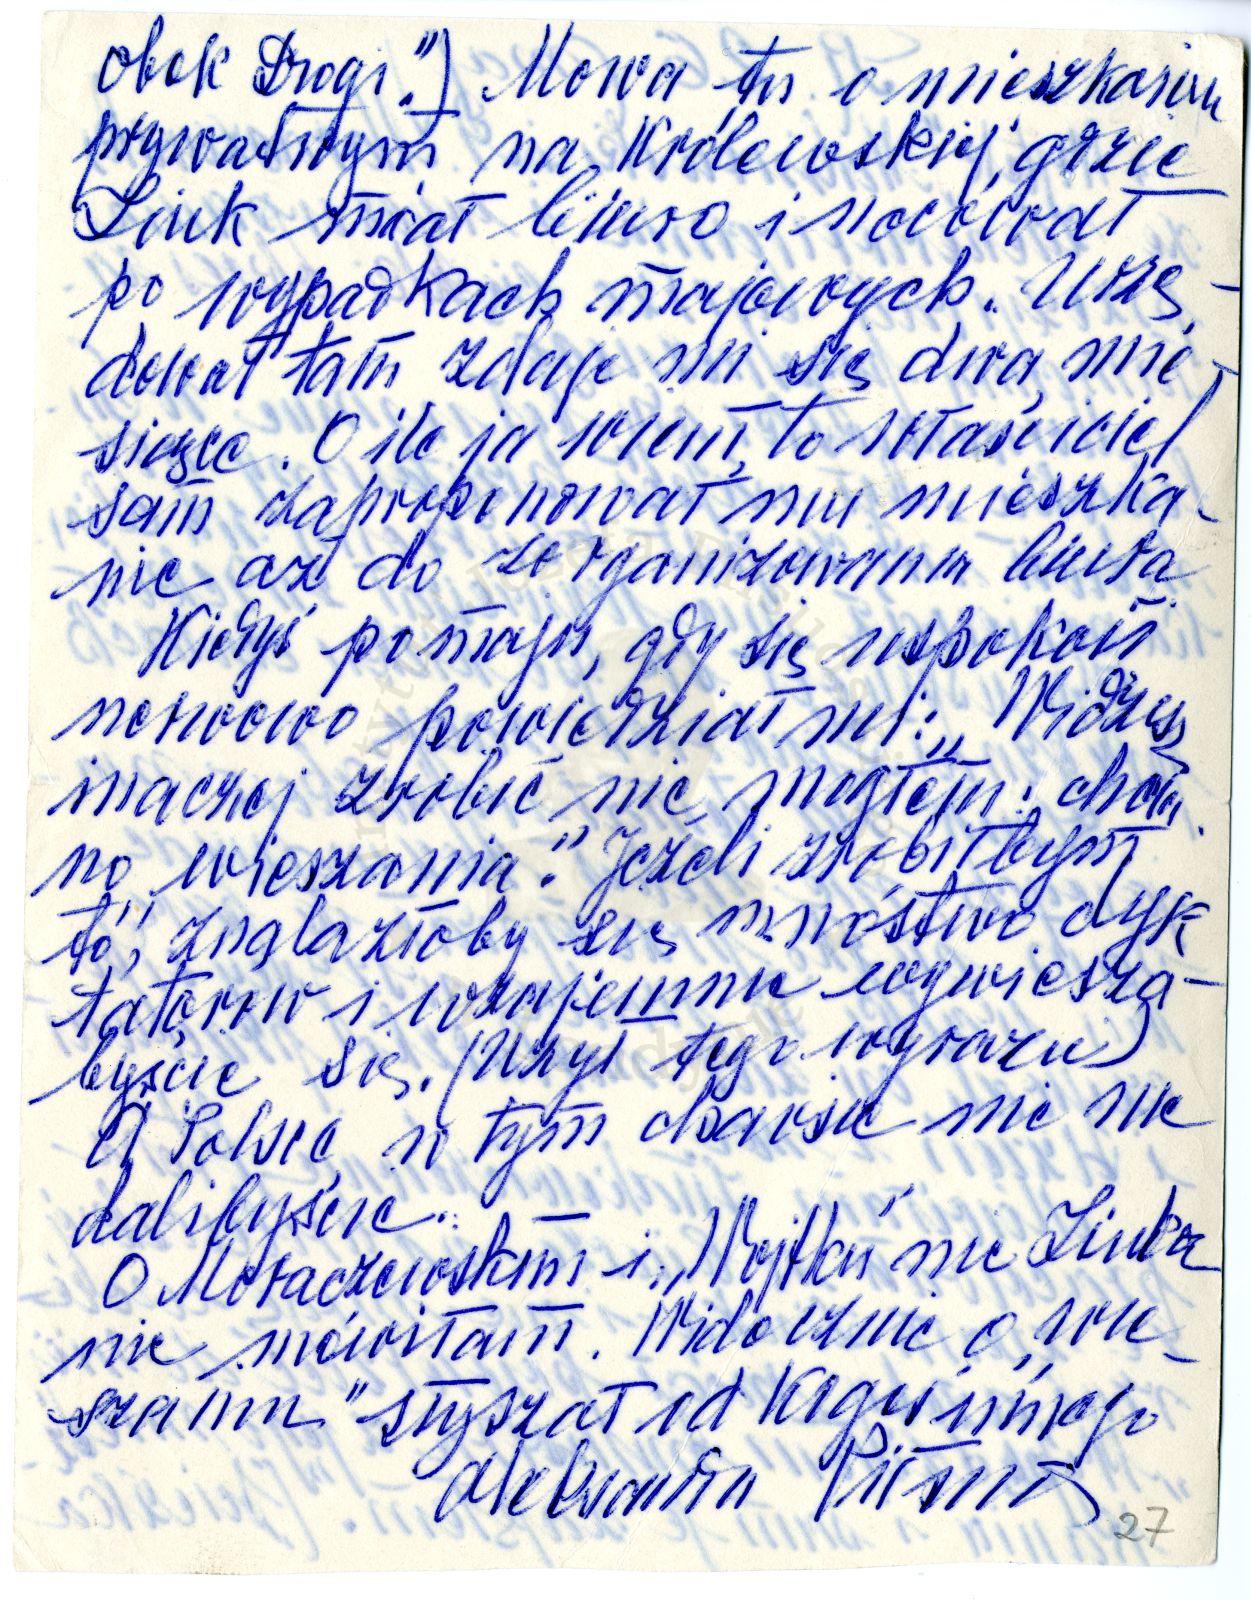 obok Drogi".) Mowa tu o mieszkaniu
prywatnym na Królewskiej, gdzie
Ziuk miał biuro i nocował
po wypadkach majowych. Urzę-
dował tam zdaje mi się dwa mie-
siące. O ile ja wiem, to właściciel
sam zaproponował mu mieszka-
nie aż do zorganizowania biura
Kiedyś po maju, gdy się uspokoił
nerwowo powiedział mi: „Widzisz
inaczej zrobić nie mogłem:
no wieszania". Jeżeli zrobiłbym
to, znalazłoby się mnóstwo dyk
tatorów i wzajemnie wywiesza-
byście się. (Użył tego wyrazu)
A Polsce w tym czasie nic nie
dalibyście.
O Moraczewskim i „Wojtku" nie Ziuka
nie mówiłam. Widocznie o „wie-
szaniu" słyszał od kogo innego
Aleksandra Piłsuds
27